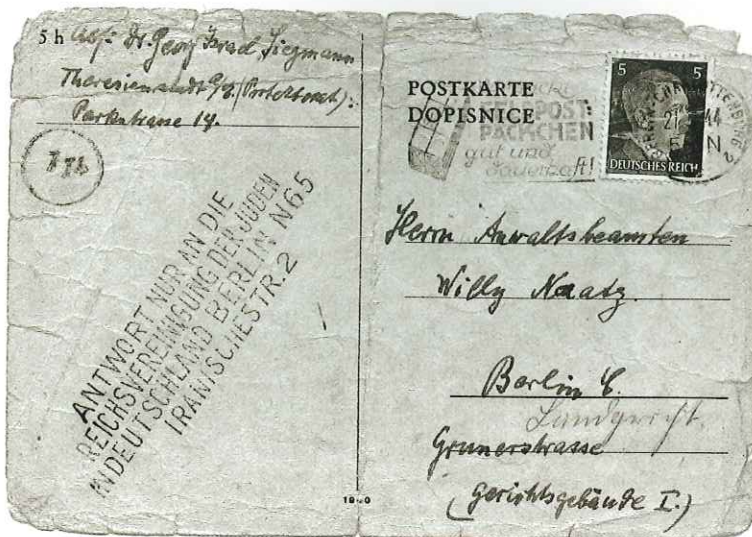 5 h Abs: Dr. Georg Israel Siegmann
Theresienstadt (Protektorat):
Parkstrasse 14.
ANTWORT NUR AN DIE
REICHSVEREINIGUNG DER JUDEN
IN DEUTSCHLAND BERLIN N65
IRANISCHESTR. 2
POSTKARTE
DOPISNICE
FELDPOST-
PÄCKCHEN
gut und
dauerhaft!
5 5
DEUTSCHES REICH
CHARLOTTENBURG 2
44
N
Herrn Anwaltsbeamten
Willy Naatz.
Berlin C.
Landgericht.
Grunerstrasse
(Gerichtsgebäude I.)